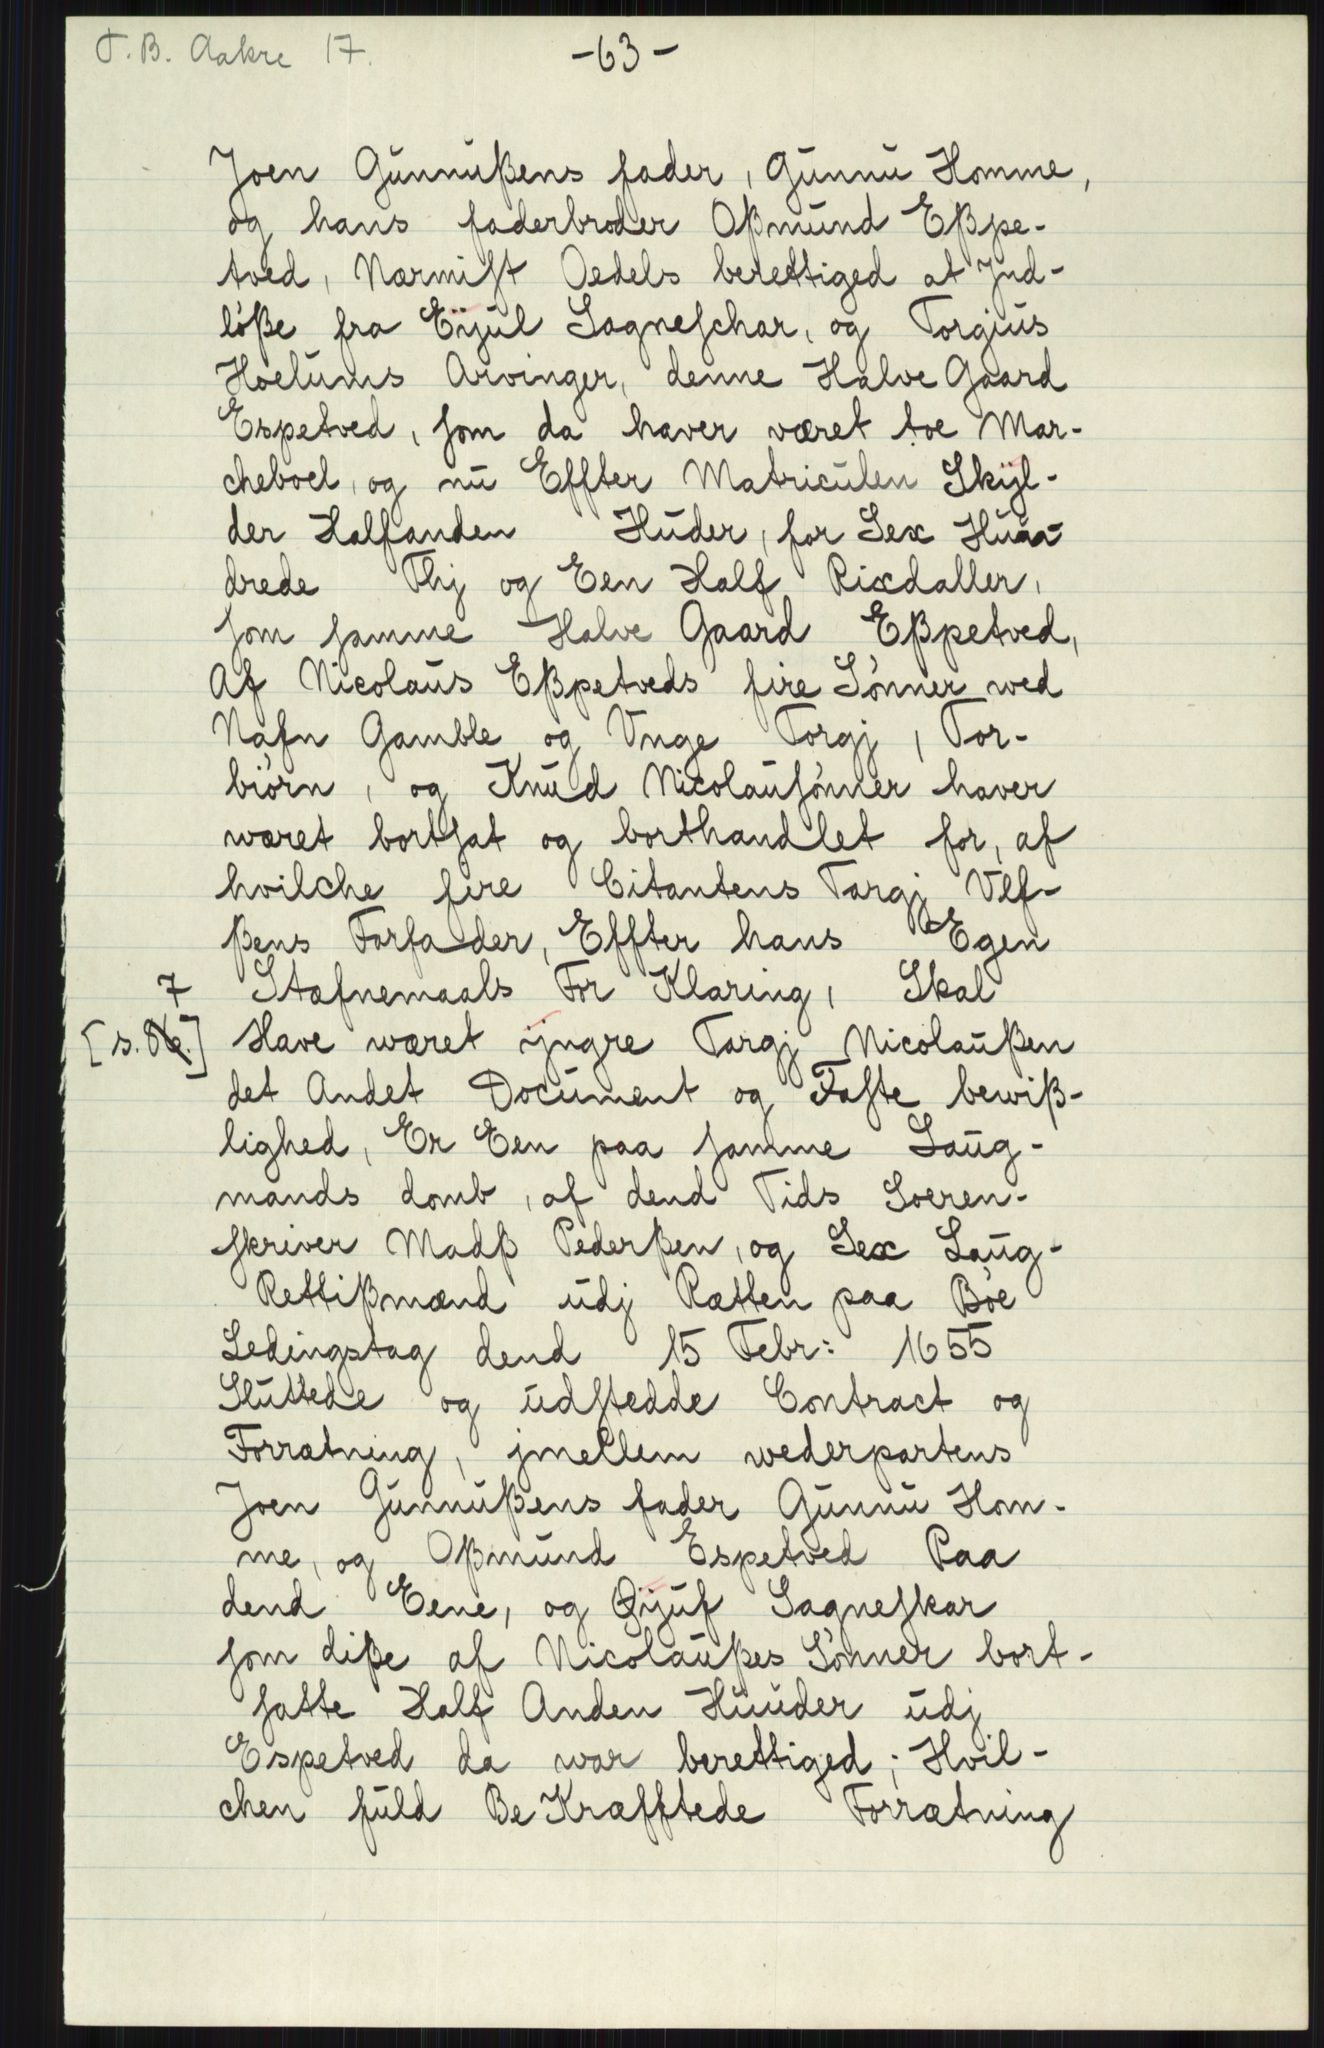 T. B. Aakre 17.
-63-
Joen Gunnußens fader, Gunnu Homme,
og hans faderbroder Oßmund Eßpe-
tved, Nærmist Oedels berettiged at Jnd-
løße fra Eÿul Sagneschar, og Torgius
Hoelums Arvinger, denne Halve Gaard
Espetved, som da haver været toe Mar-
cheboel, og nu Effter Matriculen Skÿl-
der Halfanden Huder, for Sex Hun-
drede Thj og Een Half Rixdaller,
som samme Halve Gaard Eßpetved,
Af Nicolaus Eßpetveds fire Sønner wed
Nafn Gamble og Vnge Torgj, Tor-
biørn, og Knud Nicolausønner haver
wæret bortsat og borthandlet for, af
hvilche fire Citantens Targj Vlf-
ßens Forfader, Effter hans Egen
Stæfnemaals For Klaring, Skal
7
[s. 86.] Have wæret ÿngre Targj Nicolaußen
det Andet Document og Faste bewiß-
lighed, Er Een paa samme Laug-
mands domb, af dend Tids Soeren-
skriver Madß Pederßen, og Sex Laug-
Rettißmænd udj Rætten paa Bøe
Ledingstag dend 15 Febr: 1655
Sluttede og udstedde Contract og
Forrætning, jmellem wederpartens
Joen Gunnußens fader Gunnu Hom-
me, og Oßmund Espetved Paa
dend Eene, og Øÿuf Sagneskar
som diße af Nicolaußes Sønner bort-
satte Half Anden Huuder udj
Espetved da war berettiged; Hvil-
chen fuld Be Kræfftede Forrætning